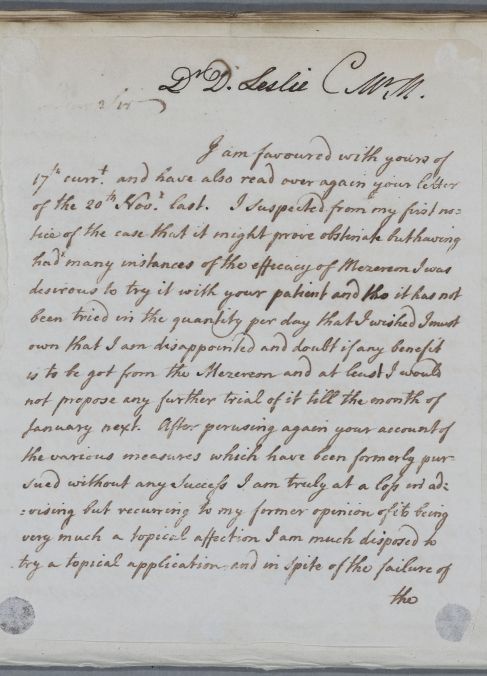 Dr. D. Leslie C Mr. M.
I am favoured with yours of
17th currt. and have also read over again your letter
of the 20th Novr. last. I suspected from my first no=
tice of the case that it might prove obstinate but having
had many instances of the efficacy of Mezereon I was
desirous to try it with your patient and tho it has not
been tried in the quantity per day that I wished I must
own that I am disappointed and doubt if any benefit
is to be got from the Mezereon and at least I would
not propose any further trial of it till the month of
January next. After perusing again your account of
the various measures which have been formerly pur=
sued without any success I am truly at a loss in ad=
=vising but recurring to my former opinion of its being
very much a topical affection I am much disposed to
try a topical application, and in spite of the failure of
the